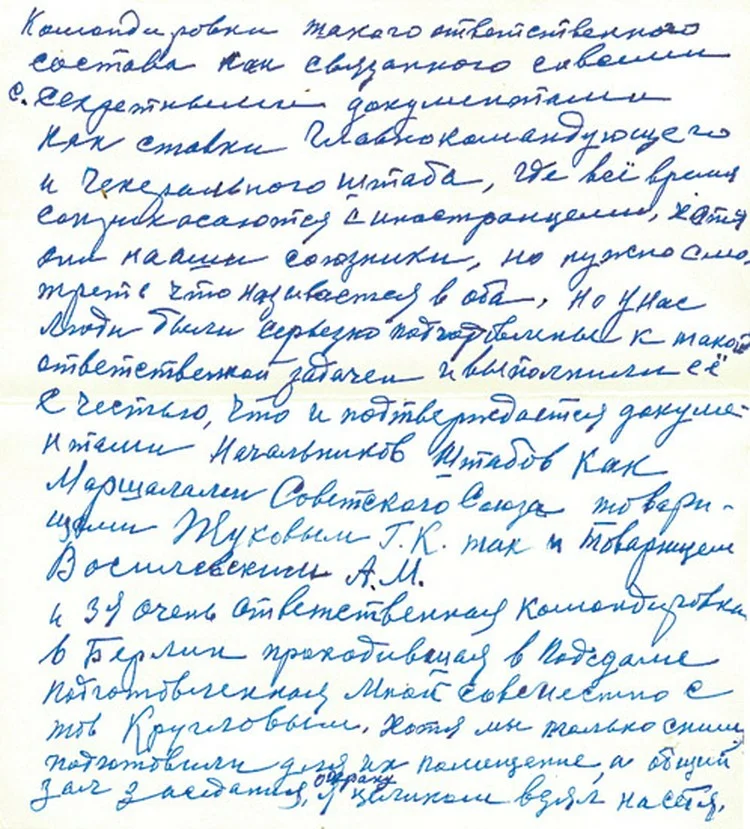 Командировки такого ответственного
состава как связанного с весьми
с. секретными документами
как ставки Главнокомандующего
и Генерального штаба, где всё время
соприкасаются с иностранцами, хотя
они наши союзники, но нужно смо
треть что называется в оба. Но у нас
люди были серьезно подготовлены к такой
ответственной задачей и выполнили её
с честью, что и подтверждается докуме-
нтами Начальников Штабов как
Маршалами Советского Союза товари-
щами Жуковым Г.К. так и товарищем
Василевским А.М.
и 3я очень ответственная командировка
в Берлин проходившая в Подсдаме
подготовленная мной совместно с
тов Кругловым. Хотя мы только с ним
подготовили для их помещение, а общий
зал заседания, охрану я целиком взял на себя.